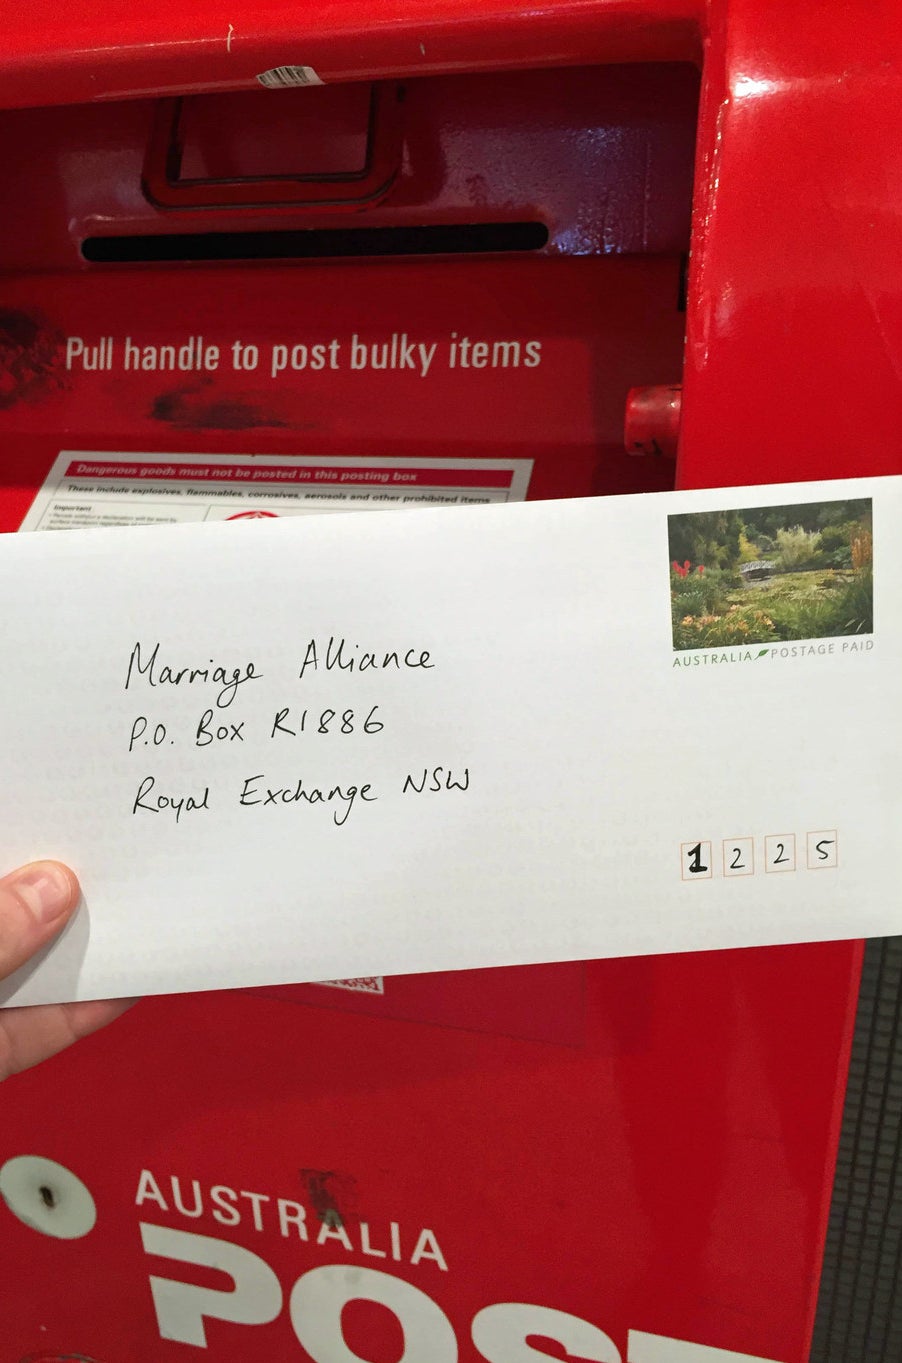 Pull handle to post bulky items
Dangerous goods must not be posted in this posting box
These include explosives, flammables, corrosives, aerosols and other prohibited items
Important
AUSTRALIA POSTAGE PAID
Marriage Alliance
P.O. Box R1886
Royal Exchange NSW
1225
AUSTRALIA
POST